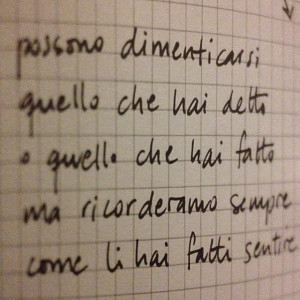 possono dimenticarsi
quello che hai detto
o quello che hai fatto
ma ricorderanno sempre
come li hai fatti sentire